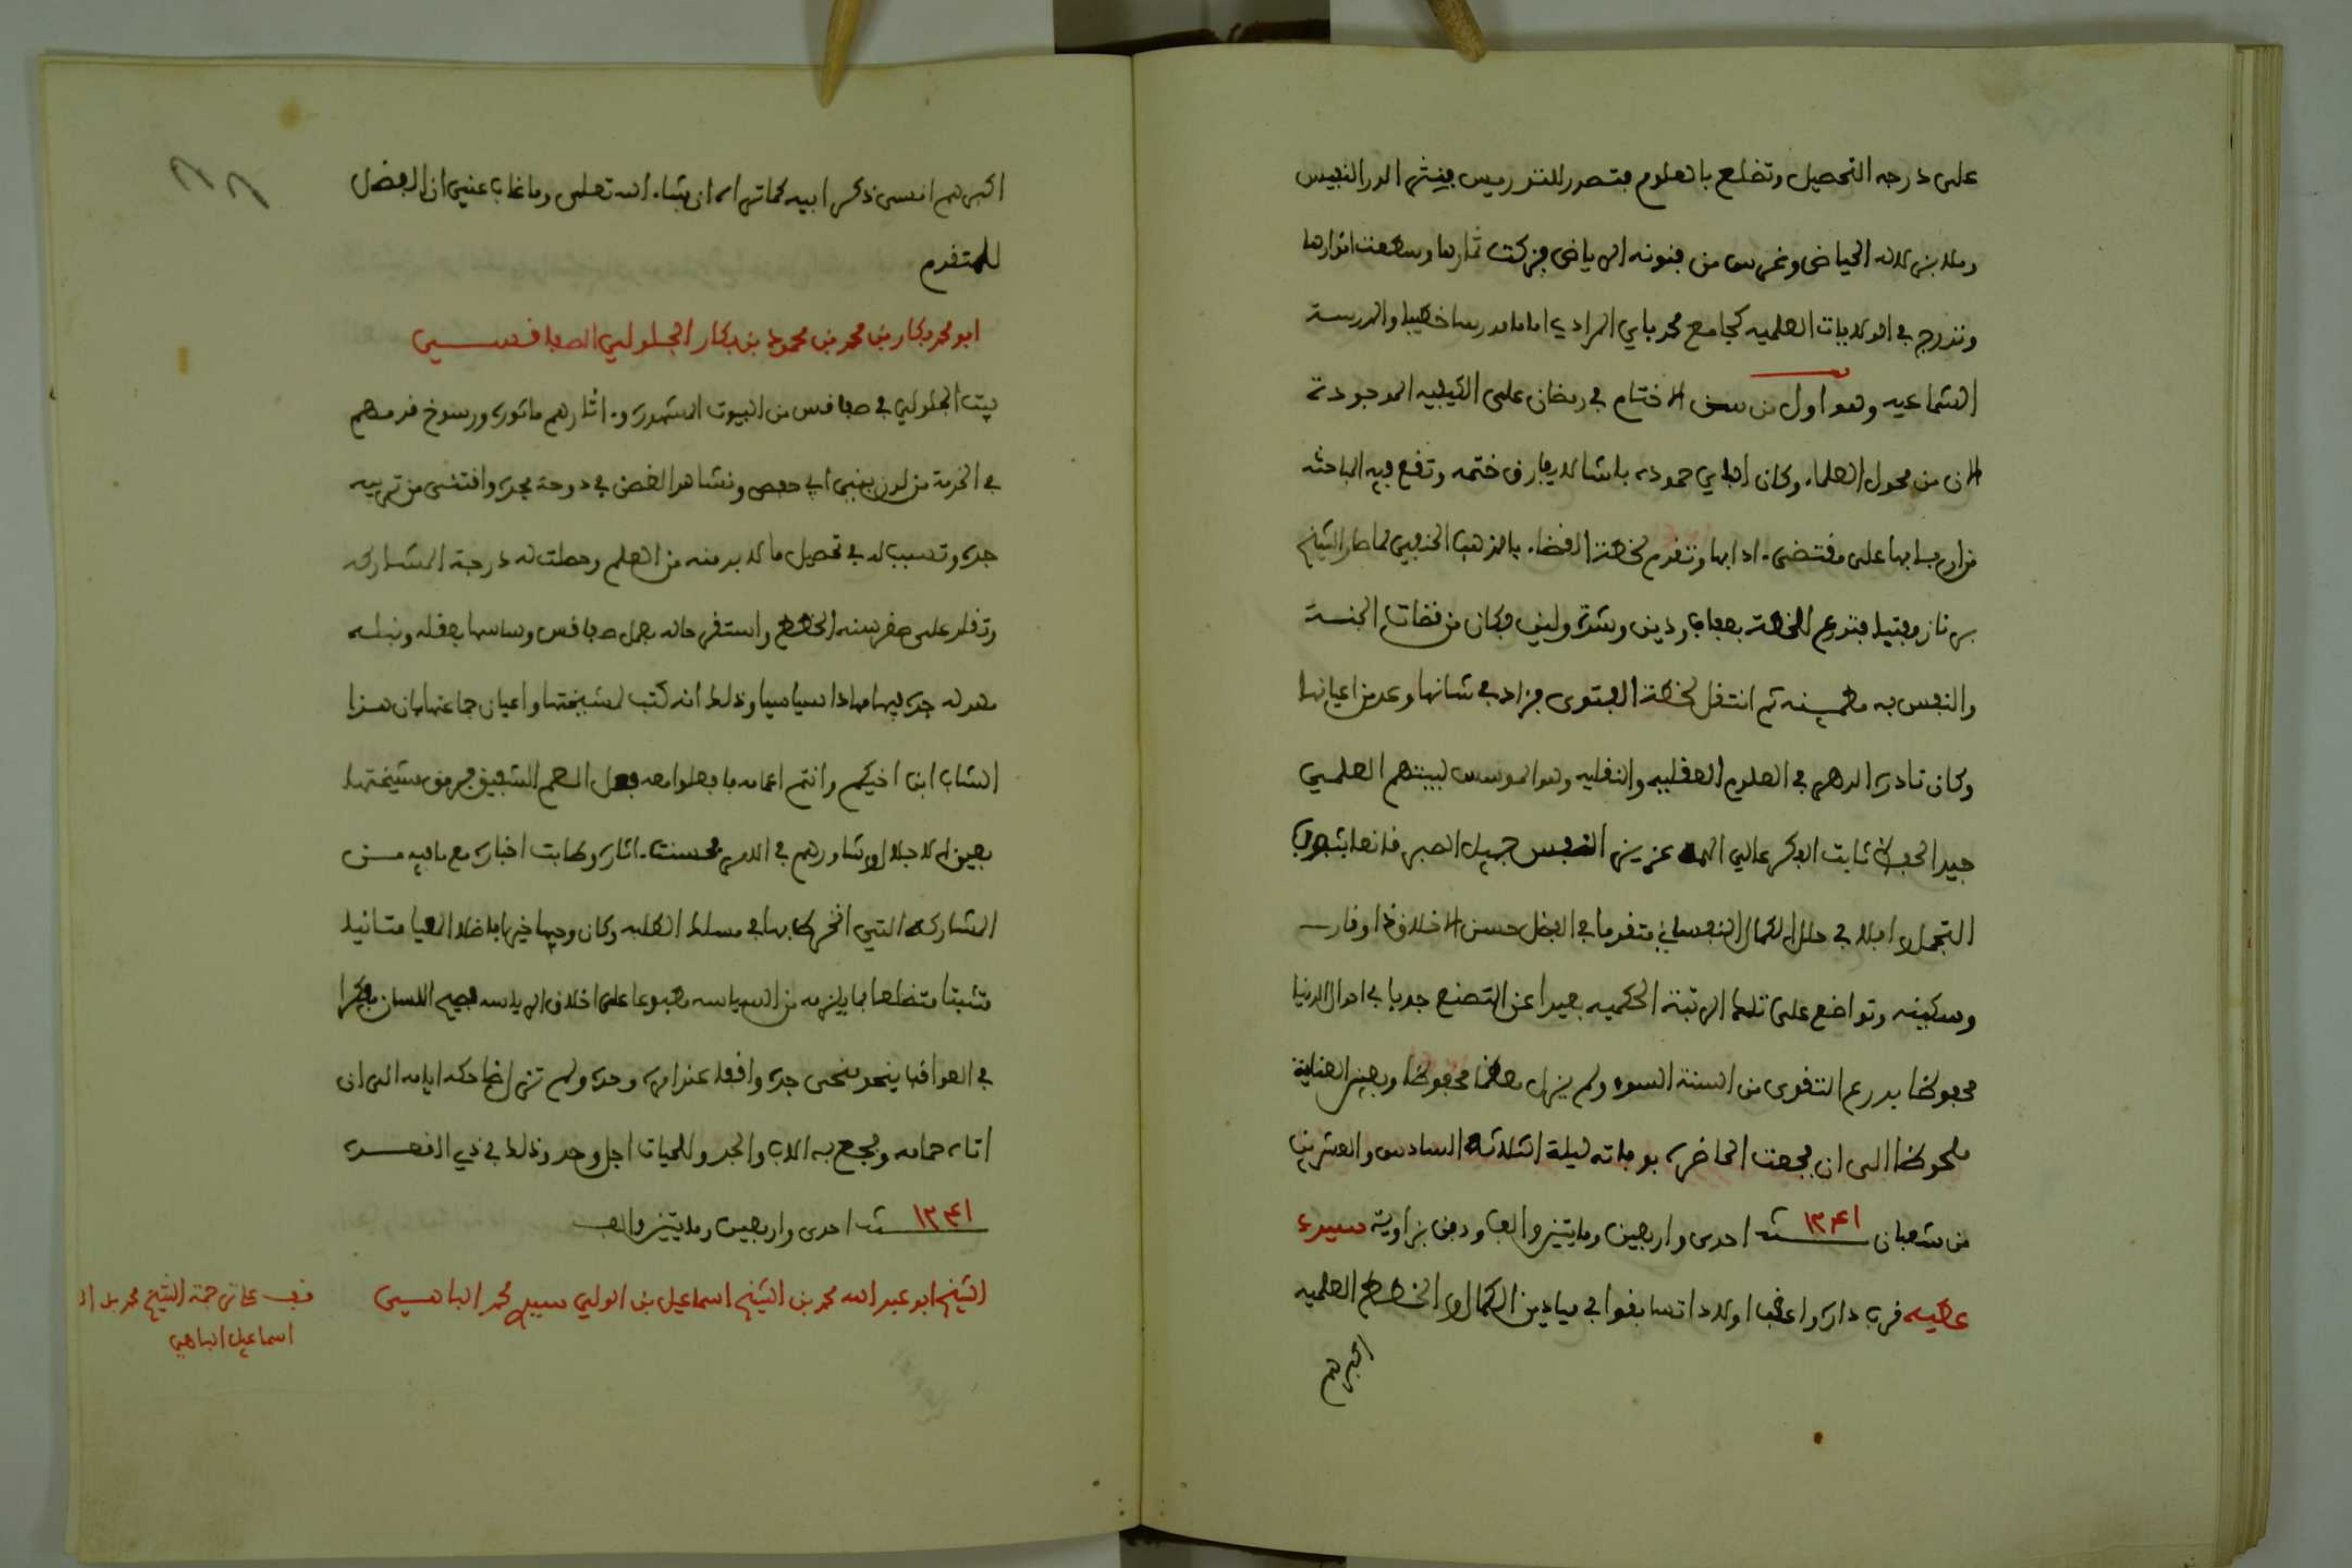 على درجه التحصيل وتضلع بالعلوم فتصدر للتدريس فينثر الدر النفيس
وملا بزلاله الحياض وغرس من فنونه الرياض فزكت ثمارها وسطعت انوارها
وتدرج في الولايات العلميه كجامع محمد باي المرادي اماما مدرسا خطيبا والمدرسة
الشماعيه وهو اول من سن الاختتام في رمضان على الكيفيه الموجودة
الان من فحول العلماء وكان الباي حموده باشا لا يفارق ختمه وتقع فيه المباحثه
من اربابها على مقتضى ادابها وتقدم لخطة القضاء بالمذهب الحنفي لما صار الشيخ
بيرناز مفتيا فتدرع للخطة بعفاف ودين وشدة ولين فكان من قضات الجنة
والنفس به مطمينه ثم انتقل لخطة الفتوى فزاد في شانها وعد من اعيانها
وكان نادرة الدهر في العلوم العقليه والنقليه وهو الموسس لبيتهم العلمي
جيد الحفظ ثابت الفكر عالي الهمة عزيز النفس جميل الصبر قانعا بثوب
التجمل رافلا في حلل الكمال النفساني متقدما في الفضل حسن الاخلاق ذا وقار
وسكينه وتواضع على تلك الرتبة الحكميه بعيدا عن التصنع جديا في احوال الدنيا
محفوظا بدرع التقوى من السنة السوء ولم يزل معظما محفوظا وبعين العناية
ملحوظا الى ان فجعت الحاضره بوفاته ليلة الثلاثة السادس والعشرين
من شعبان سنة ١٢٤١ احدى واربعين وماتين والف ودفن بزاوية سيدي
عطيه قرب داره واعقب اولادا تسابقوا في ميادين الكمال والخطط العلميه
اكبرهم
اكبرهم انسى ذكر ابيه كما تراه ان شاء الله تعلى وما غاب عني ان الفضل
للمتقدم
ابو محمد بكار بن محمد بن محمود بن بكار الجلولي الصفاقسي
بيت الجلولي في صفاقس من البيوت المشهورة واثارهم ماثورة ورسوخ قدمهم
في الخدمة من لدن بني ابي حفص ونشا هذا الغصن في دوحة مجده واقتنى من تربيه
جده وتسبب له في تحصيل ما لا بد منه من العلم وحصلت له درجة المشاركه
وتقلد على صغر سنه الخطط واستقر حاله بعمل صفاقس وساسها بعقله ونبله
مهد له جده فيها مهادا سياسيا وذلك انه كتب لمشيختها واعيان جماعتها بان هذا
الشاب ابن اخيكم وانتم اعمامه فافعلوا معه فعل العم الشفيق فرمق مشيختها
بعين الاجلال وشاورهم في الامر فحسنت اثاره وطابت اخباره مع ما فيه من
المشاركة التي انخرط بها في مسلك الطلبه وكان وجيها خيرا فاضلا العيا متانيا
متثبتا متضلعا بما يلزمه من السياسه مطبوعا على اخلاق الرياسه فصيح اللسان مفكرا
في العواقب ينحو منحى جده واقفا عند امره وحده ولم تزل ضاحكه ايامه الى ان
اتاه حمامه وفجع به الاب والجد وللحيات اجل وحد وذلك في ذي القعدة
سنة ١٢٤١ احدى واربعين وماتين والف
الشيخ ابو عبد الله محمد بن الشيخ اسماعيل بن الولي سيدي محمد الباهي
قف على ترجمة الشيخ محمد بن
اسماعيل الباهي